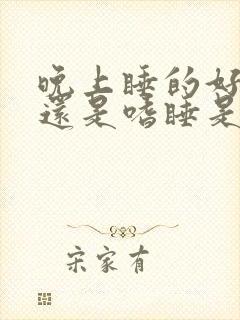 晚上睡的好
還是嗜睡是
宋家有